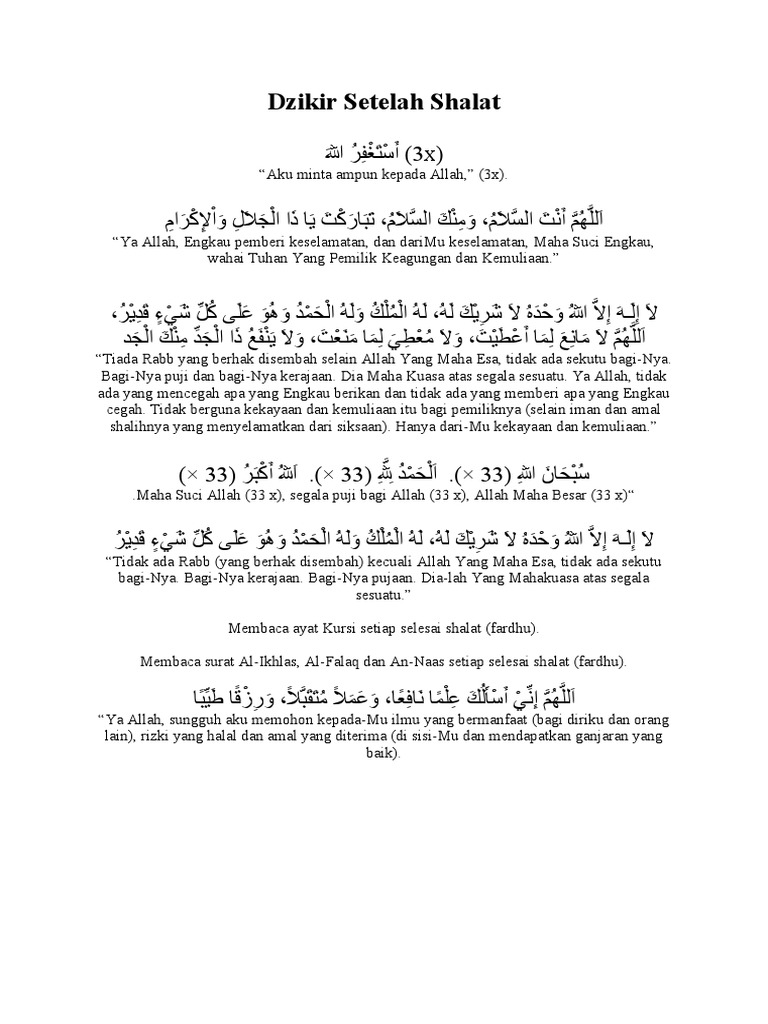 Dzikir Setelah Shalat
أَسْتَغْفِرُ اللهَ (3x)
“Aku minta ampun kepada Allah,” (3x).
اَللَّهُمَّ أَنْتَ السَّلاَمُ، وَمِنْكَ السَّلاَمُ، تَبَارَكْتَ يَا ذَا الْجَلاَلِ وَاْلإِكْرَامِ
“Ya Allah, Engkau pemberi keselamatan, dan dariMu keselamatan, Maha Suci Engkau,
wahai Tuhan Yang Pemilik Keagungan dan Kemuliaan.”
لاَ إِلَـهَ إِلاَّ اللهُ وَحْدَهُ لاَ شَرِيْكَ لَهُ، لَهُ الْمُلْكُ وَلَهُ الْحَمْدُ وَهُوَ عَلَى كُلِّ شَيْءٍ قَدِيْرُ،
اَللَّهُمَّ لاَ مَانِعَ لِمَا أَعْطَيْتَ، وَلاَ مُعْطِيَ لِمَا مَنَعْتَ، وَلاَ يَنْفَعُ ذَا الْجَدِّ مِنْكَ الْجَد
“Tiada Rabb yang berhak disembah selain Allah Yang Maha Esa, tidak ada sekutu bagi-Nya.
Bagi-Nya puji dan bagi-Nya kerajaan. Dia Maha Kuasa atas segala sesuatu. Ya Allah, tidak
ada yang mencegah apa yang Engkau berikan dan tidak ada yang memberi apa yang Engkau
cegah. Tidak berguna kekayaan dan kemuliaan itu bagi pemiliknya (selain iman dan amal
shalihnya yang menyelamatkan dari siksaan). Hanya dari-Mu kekayaan dan kemuliaan.”
سُبْحَانَ اللهِ (33 ×). اَلْحَمْدُ لِلَّهِ (33 ×). اَللهُ أَكْبَرُ (33 ×)
.Maha Suci Allah (33 x), segala puji bagi Allah (33 x), Allah Maha Besar (33 x)“
لاَ إِلَـهَ إِلاَّ اللهُ وَحْدَهُ لاَ شَرِيْكَ لَهُ، لَهُ الْمُلْكُ وَلَهُ الْحَمْدُ وَهُوَ عَلَى كُلِّ شَيْءٍ قَدِيْرُ
“Tidak ada Rabb (yang berhak disembah) kecuali Allah Yang Maha Esa, tidak ada sekutu
bagi-Nya. Bagi-Nya kerajaan. Bagi-Nya pujaan. Dia-lah Yang Mahakuasa atas segala
sesuatu.”
Membaca ayat Kursi setiap selesai shalat (fardhu).
Membaca surat Al-Ikhlas, Al-Falaq dan An-Naas setiap selesai shalat (fardhu).
اَللَّهُمَّ إِنِّيْ أَسْأَلُكَ عِلْمًا نَافِعًا، وَعَمَلاً مُتَقَبَّلاً، وَرِزْقًا طَيِّبًا
“Ya Allah, sungguh aku memohon kepada-Mu ilmu yang bermanfaat (bagi diriku dan orang
lain), rizki yang halal dan amal yang diterima (di sisi-Mu dan mendapatkan ganjaran yang
baik).